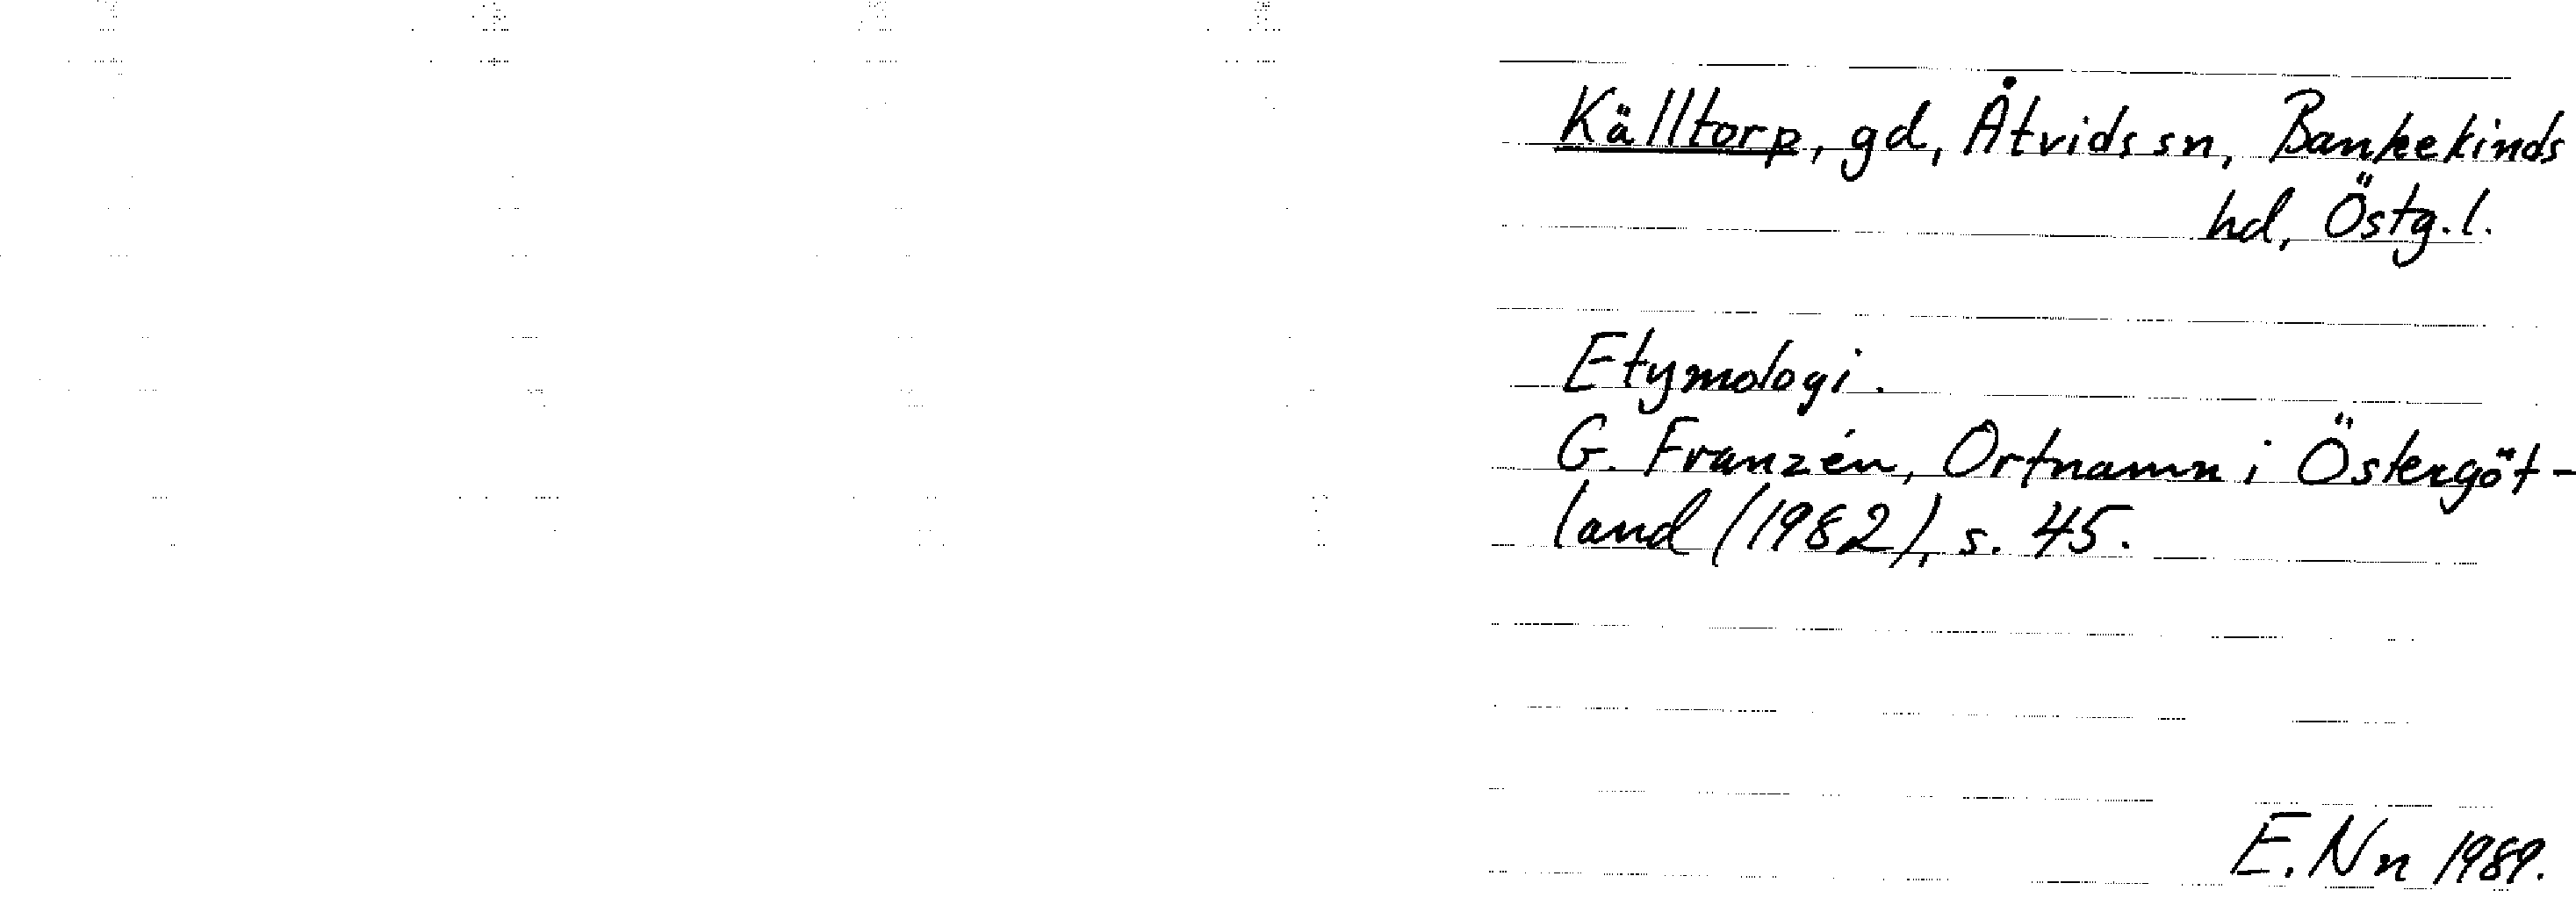 Källtorp, gd, Åtvids sn, Bankekinds
hd, Östg.l.
Etymologi.
G. Franzén, Ortnamn i Östergöt-
land (1982), s. 45.
E. Nn 1989.